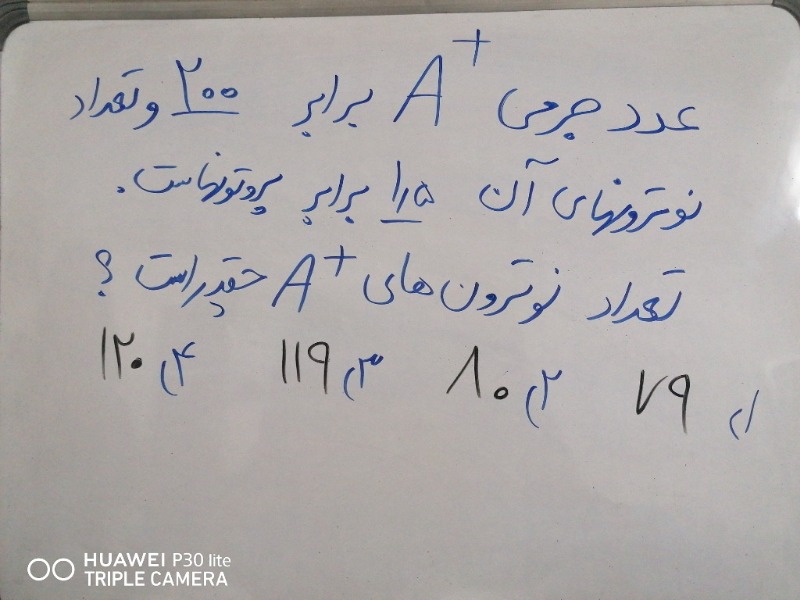 عدد جرمی A⁺ برابر ۲۰۰ و تعداد
نوترونهای آن ۱٫۵ برابر پروتونهاست.
تعداد نوترون های A⁺ چقدر است؟
۱) ۷۹ ۲) ۸۰ ۳) ۱۱۹ ۴) ۱۲۰
HUAWEI P30 lite
TRIPLE CAMERA